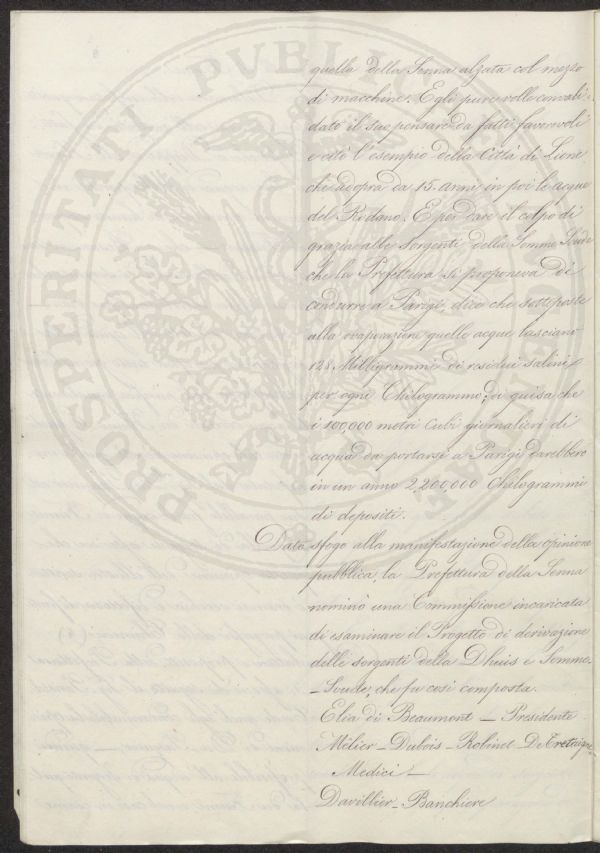 quella della Senna alzata col mezzo
di macchine. Egli pure volle convali-
dato il suo pensare da fatti favorevoli
e citò l'esempio della Città di Lione
che adopra da 15 anni in poi le acque
del Rodano. E per dare il colpo di
grazia alle sorgenti della Somme Soude
che la Prefettura si proponeva di
condurre a Parigi, dice che sottoposte
alla evaporazione quelle acque lasciano
128 Milligrammi di residui salini
per ogni Chilogrammo; di guisa che
i 100,000 metri Cubi giornalieri di
acqua da portarsi a Parigi darebbero
in un anno 2,200,000 Chilogrammi
di depositi.
Dato sfogo alla manifestazione della opinione
pubblica, la Prefettura della Senna
nominò una Commissione incaricata
di esaminare il Progetto di derivazione
delle sorgenti della Dhuis e Somme-
-Soude, che fu così composta.
Elia di Beaumont – Presidente
Mélier – Dubois – Robinet – De Tretaigne
Medici –
Davillier – Banchiere
PROSPERITATI PVBLIC